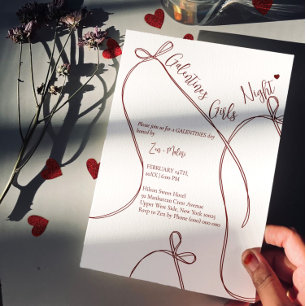 Galentines
Girls
Night
Please join us for a GALENTINES day
hosted by
FEBRUARY 14TH,
20XX | 6:00 PM
Hilton Sweet Hotel
Manhattan Crest Avenue
Upper West Side, New York 10025
Keep to Zen by Phone (000) 000-000